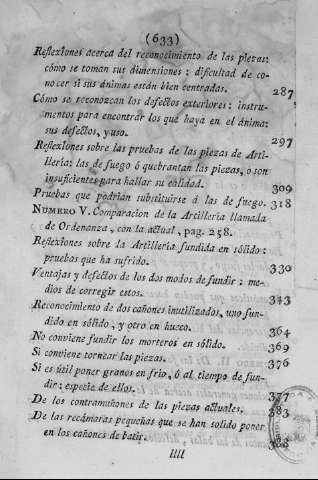 (633)
Reflexîones acerca del reconocimiento de las piezas:
cómo se toman sus dimensiones: dificultad de co-
nocer si sus ánimas están bien centradas. 287
Cómo se reconozcan los defectos exteriores: instru-
mentos para encontrar los que haya en el ánima:
sus defectos, y uso. 297
Reflexîones sobre las pruebas de las piezas de Arti-
llería: las de fuego ó quebrantan las piezas, o son
insuficientes para hallar su calidad. 309
Pruebas que podrian substituirse á las de fuego. 318
NUMERO V. Comparacion de la Artillería llamada
de Ordenanza, con la actual, pag. 258.
Reflexîones sobre la Artillería fundida en sólido:
pruebas que ha sufrido. 330
Ventajas y defectos de los dos modos de fundir: me-
dios de corregir estos. 343
Reconocimiento de dos cañones inutilizados, uno fun-
dido en sólido, y otro en hueco. 364
No conviene fundir los morteros en sólido. 369
Si conviene tornear las piezas. 376
Si es útil poner granos en frio, ó al tiempo de fun-
dir: especie de ellos. 377
De los contramuñones de las piezas actuales. 383
De las recámaras pequeñas que se han solido poner
en los cañones de batir. 388
Llll